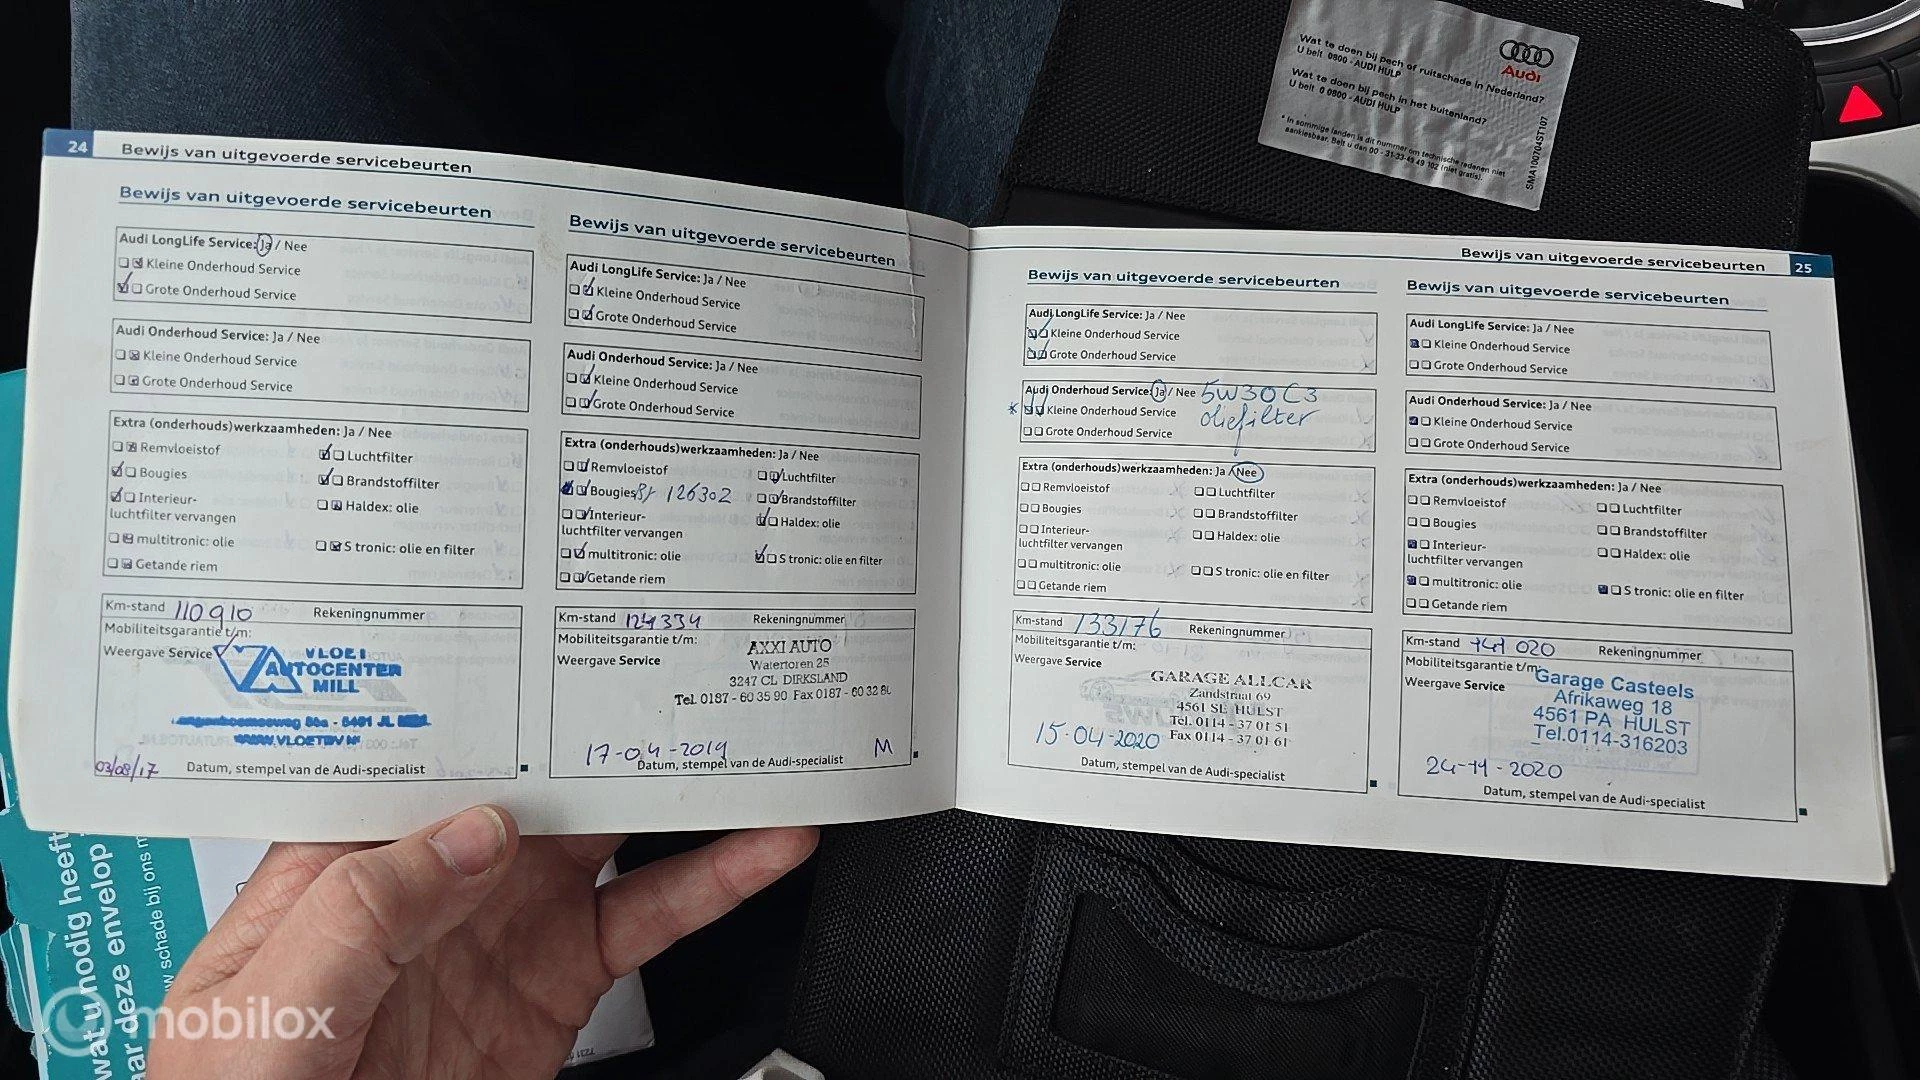 Wat te doen bij pech of ruitschade in Nederland?
U belt 0800 - AUDI HULP
Wat te doen bij pech in het buitenland?
U belt 0 0800 - AUDI HULP
* In sommige landen is dit nummer om technische redenen niet
aankiesbaar. Belt u dan 00 - 31-33-49 49 102 (niet gratis).
Audi
SMA100704ST107
24
Bewijs van uitgevoerde servicebeurten
Bewijs van uitgevoerde servicebeurten
Audi LongLife Service: Ja / Nee
Kleine Onderhoud Service
Grote Onderhoud Service
Audi Onderhoud Service: Ja / Nee
Kleine Onderhoud Service
Grote Onderhoud Service
Extra (onderhouds)werkzaamheden: Ja / Nee
Remvloeistof
Luchtfilter
Bougies
Brandstoffilter
Interieur-
luchtfilter vervangen
Haldex: olie
multitronic: olie
S tronic: olie en filter
Getande riem
Km-stand 110910
Rekeningnummer
Mobiliteitsgarantie t/m:
Weergave Service
VLOET
AUTOCENTER
MILL
03/08/17
Datum, stempel van de Audi-specialist
Bewijs van uitgevoerde servicebeurten
Audi LongLife Service: Ja / Nee
Kleine Onderhoud Service
Grote Onderhoud Service
Audi Onderhoud Service: Ja / Nee
Kleine Onderhoud Service
Grote Onderhoud Service
Extra (onderhouds)werkzaamheden: Ja / Nee
Remvloeistof
Luchtfilter
Bougies 126302
Brandstoffilter
Interieur-
luchtfilter vervangen
Haldex: olie
multitronic: olie
S tronic: olie en filter
Getande riem
Km-stand 124334
Rekeningnummer
Mobiliteitsgarantie t/m:
Weergave Service
AXXI AUTO
Watertoren 25
3247 CL DIRKSLAND
Tel. 0187 - 60 35 90 Fax 0187 - 60 32 80
17-04-2019 M
Datum, stempel van de Audi-specialist
Bewijs van uitgevoerde servicebeurten
25
Bewijs van uitgevoerde servicebeurten
Audi LongLife Service: Ja / Nee
Kleine Onderhoud Service
Grote Onderhoud Service
Audi Onderhoud Service: Ja / Nee 5W30C3
* Kleine Onderhoud Service oliefilter
Grote Onderhoud Service
Extra (onderhouds)werkzaamheden: Ja / Nee
Remvloeistof
Luchtfilter
Bougies
Brandstoffilter
Interieur-
luchtfilter vervangen
Haldex: olie
multitronic: olie
S tronic: olie en filter
Getande riem
Km-stand 133176
Rekeningnummer
Mobiliteitsgarantie t/m:
Weergave Service
GARAGE ALLCAR
Zandstraat 69
4561 SE HULST
Tel. 0114 - 37 01 51
Fax 0114 - 37 01 61
15-04-2020
Datum, stempel van de Audi-specialist
Bewijs van uitgevoerde servicebeurten
Audi LongLife Service: Ja / Nee
Kleine Onderhoud Service
Grote Onderhoud Service
Audi Onderhoud Service: Ja / Nee
Kleine Onderhoud Service
Grote Onderhoud Service
Extra (onderhouds)werkzaamheden: Ja / Nee
Remvloeistof
Luchtfilter
Bougies
Brandstoffilter
Interieur-
luchtfilter vervangen
Haldex: olie
multitronic: olie
S tronic: olie en filter
Getande riem
Km-stand 141 020
Rekeningnummer
Mobiliteitsgarantie t/m:
Weergave Service
Garage Casteels
Afrikaweg 18
4561 PA HULST
Tel.0114-316203
24-11-2020
Datum, stempel van de Audi-specialist
wat u nodig heeft
aar deze envelop
w schade bij ons m
mobilox